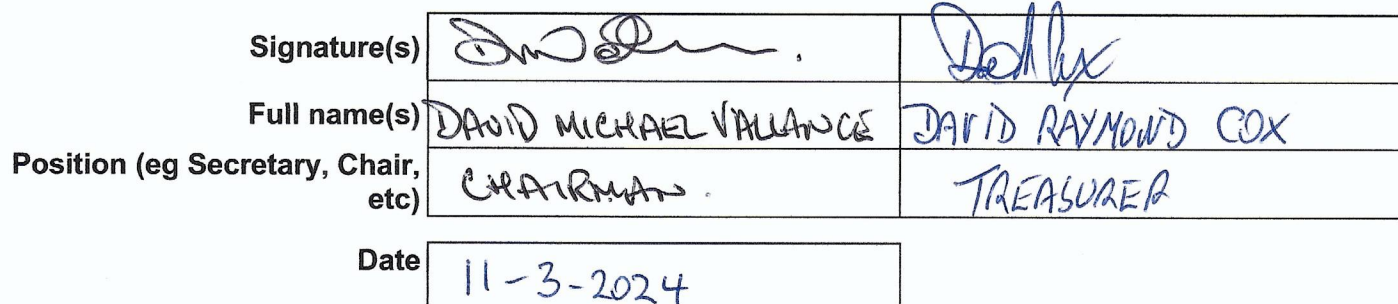 Signature(s)
Full name(s) DAVID MICHAEL VALLANCE DAVID RAYMOND COX
Position (eg Secretary, Chair,
etc) CHAIRMAN. TREASURER
Date 11-3-2024